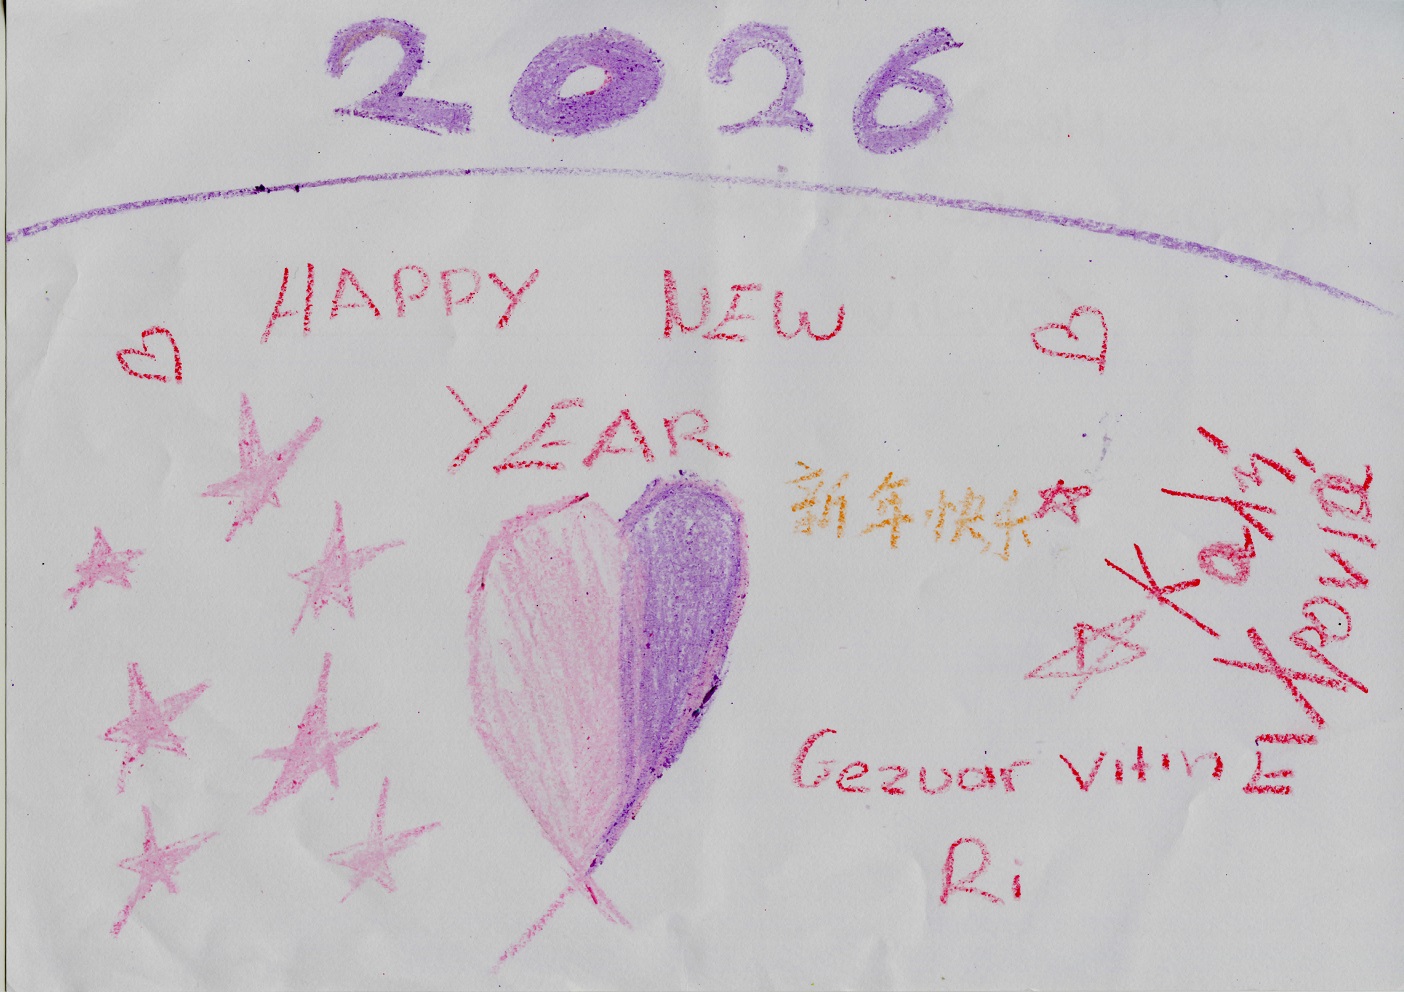 2026
HAPPY NEW
YEAR
新年快乐
Gezuar Vitin E
Ri